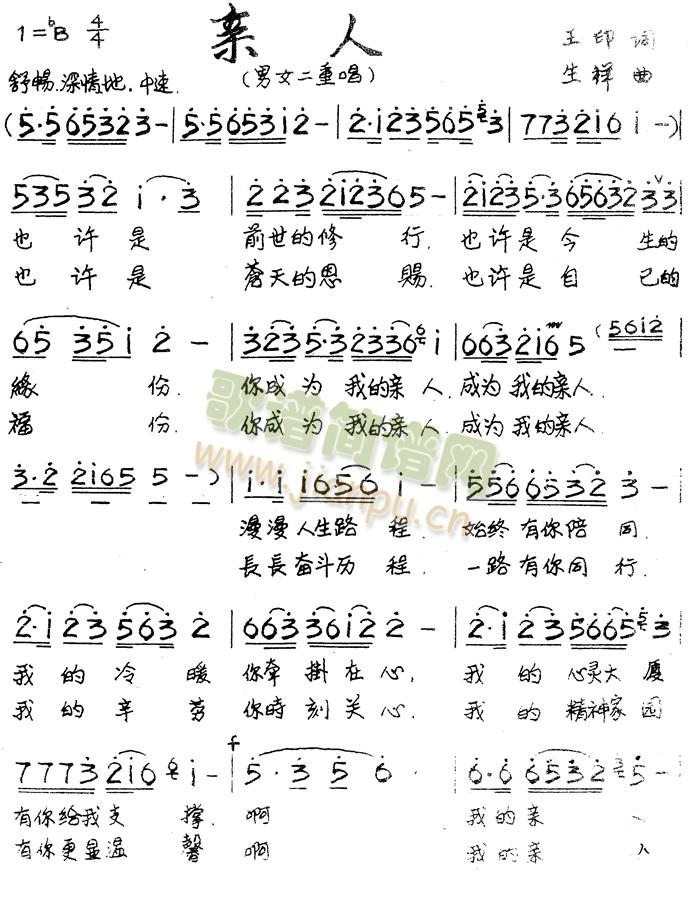 1=♭B 4/4
亲人
王印 词
舒畅.深情地.中速.
(男女二重唱)
生祥 曲
(5·5 65323 - | 5·5 6531 2 - | 2·1 235653 | 7732161 - )
5353 2 1·3 | 2 2 3 2123 6 5 - | 21235·3 656323 3
也许是 前世的修行. 也许是今生的
也许是 蒼天的恩賜. 也许是自己的
65 351 2 - | 3235·32336 1 | 6632165 (5612
緣份. 你成为我的亲人.成为我的亲人.
福份. 你成为我的亲人.成为我的亲人.
3·2 2165 5 - ) | 1·1 1656 1 - | 556 6532 3 -
漫漫人生路程. 始终有你陪同.
長長奋斗历程. 一路有你同行.
2·1 23 563 2 | 663361 2 2 - | 2·1 235665 3
我的冷暖 你牵掛在心, 我的心灵大厦
我的辛劳 你時刻关心. 我的精神家园
7773 216 1 - | f 5·3 5 6 | 6·6 6532 5 -
有你给我支撑. 啊 我的亲
有你更显温馨 啊 我的亲人
歌谱简谱网
www.jianpu.cn